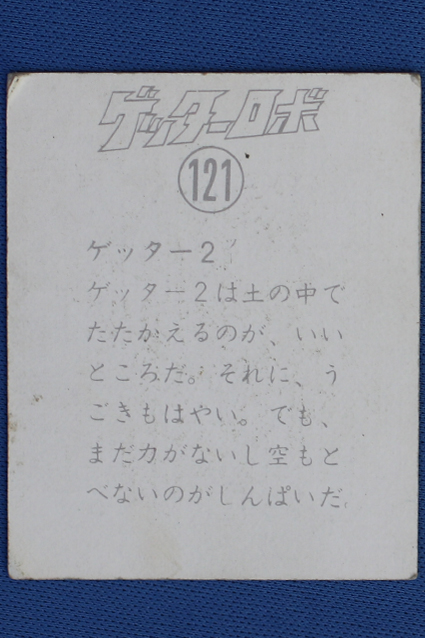 ゲッターロボ
121
ゲッター2
ゲッター2は土の中で
たたかえるのが、いい
ところだ。それに、う
ごきもはやい。でも、
まだ力がないし空もと
べないのがしんぱいだ。